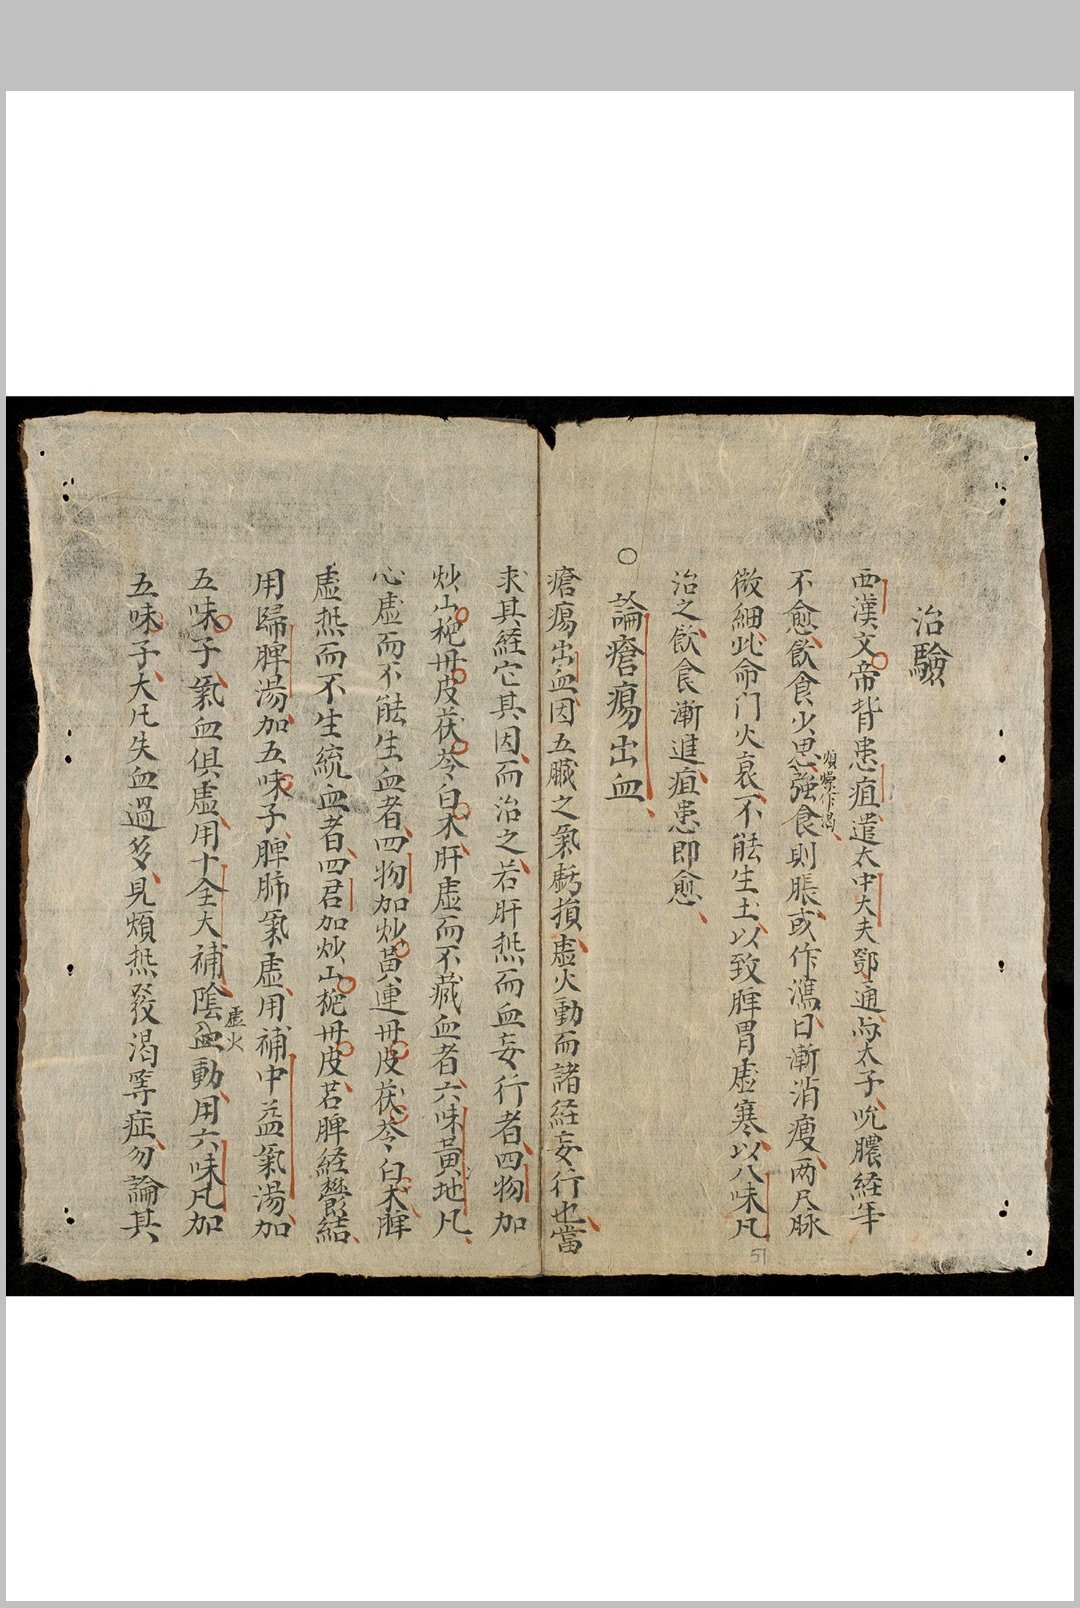 治驗
西漢文帝背患疽遣太中大夫鄧通與太子吮膿経年
不愈飲食少思強食則脹或作瀉日漸消瘦两尺脉
煩燥作渴
微細此命门火衰不能生土以致脾胃虛寒以八味凡
治之飲食漸進疽患即愈
○論瘡瘍出血
瘡瘍出血因五臟之氣虧損虛火動而諸経妄行也當
求其経它其因而治之若肝热而血妄行者四物加
炒山梔丹皮茯苓白术肝虛而不藏血者六味黄地凡
心虛而不能生血者四物加炒黄連丹皮茯苓白术脾
虛热而不生統血者四君加炒山梔丹皮若脾経鬱結
用歸脾湯加五味子脾肺氣虛用補中益氣湯加
五味子氣血俱虛用十全大補陰血動用六味凡加
虛火
五味子大凡失血過多見煩热發渴等症勿論其
51